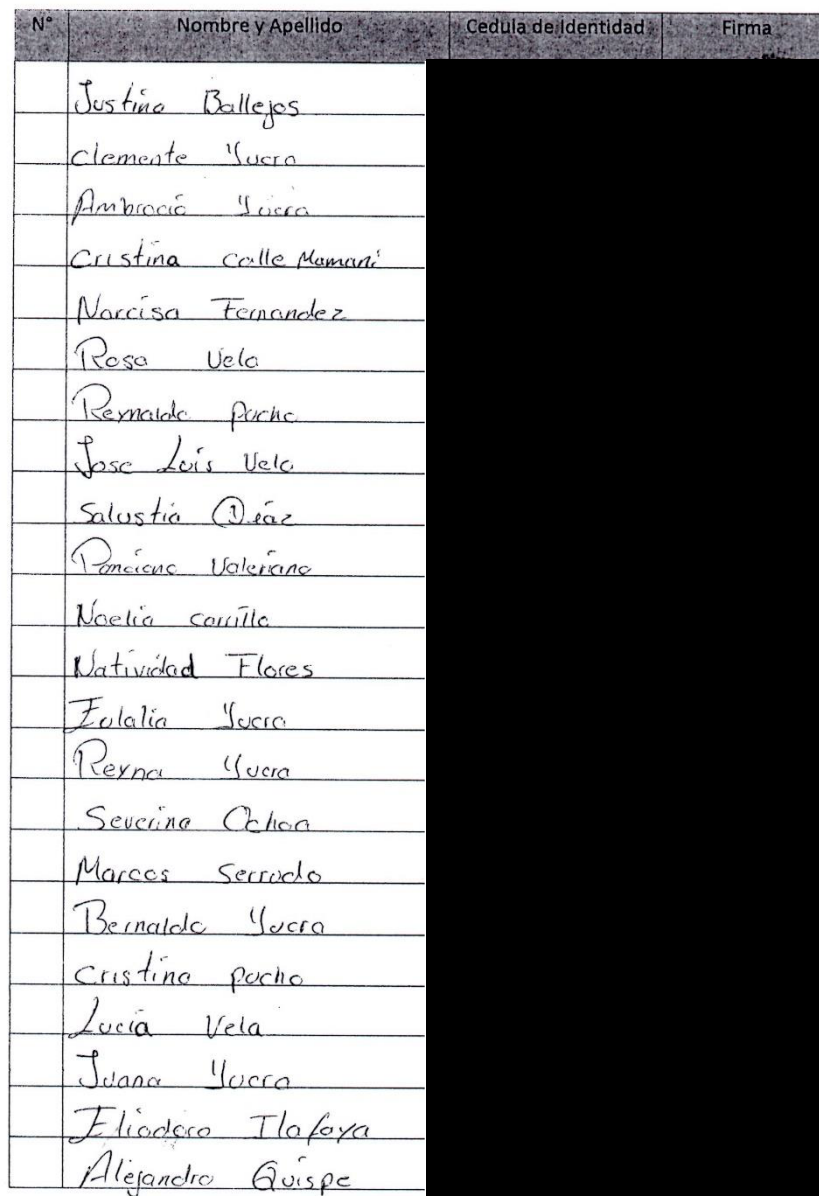 N° Nombre y Apellido Cedula de Identidad Firma
Justina Ballejos
Clemente Yucra
Ambrocio Yucra
Cristina Calle Mamani
Narcisa Fernandez
Rosa Vela
Reynaldo pacho
Jose Luis Vela
Salustia Diaz
Ponciano Valeriano
Noelia Carrillo
Natividad Flores
Eulalia Yucra
Reyna Yucra
Severina Ochoa
Marcos Serrudo
Bernaldo Yucra
Cristina pacho
Lucia Vela
Juana Yucra
Eliodoro
Alejandro Quispe